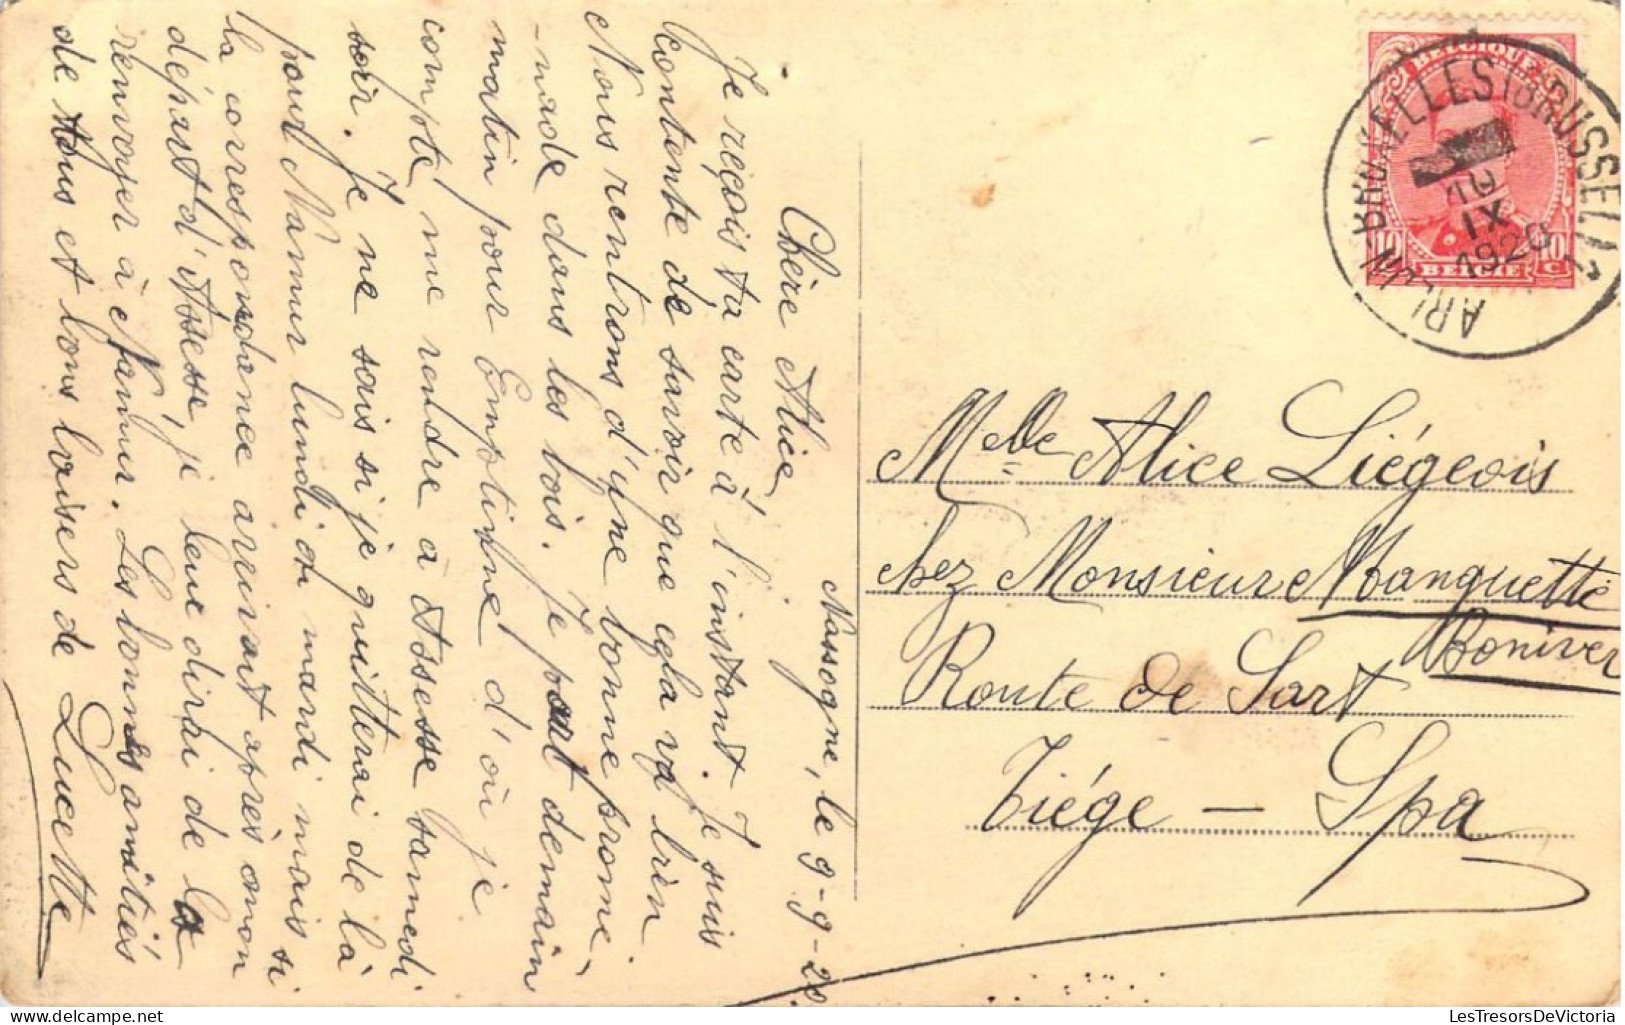 Nassogne, le 9-9-20.
Chère Alice,
Je reçois ta carte à l'instant. Je suis
contente de savoir que cela va bien
Nous rentrons d'une bonne prome-
-nade dans les bois. Je part demain
matin pour Emptinne d'où je
compte me rendre à Assesse samedi
soir. Je ne sais si je quitterai de là
pour Namur lundi ou mardi mais si
la correspondance arrivait après mon
départ d'Assesse, je leur dirai de la
renvoyer à Namur. Les bonnes amitiés
de tous et bons baisers de Lucette
BELGIQUE
10 10
C
BELGIE
ARLON-BRUXELLES (BRUSSEL)
10
IX
1920
Melle Alice Liégeois
chez Monsieur Manguette
Boniver
Route de Sart
Liége - Spa
LesTresorsDeVictoria